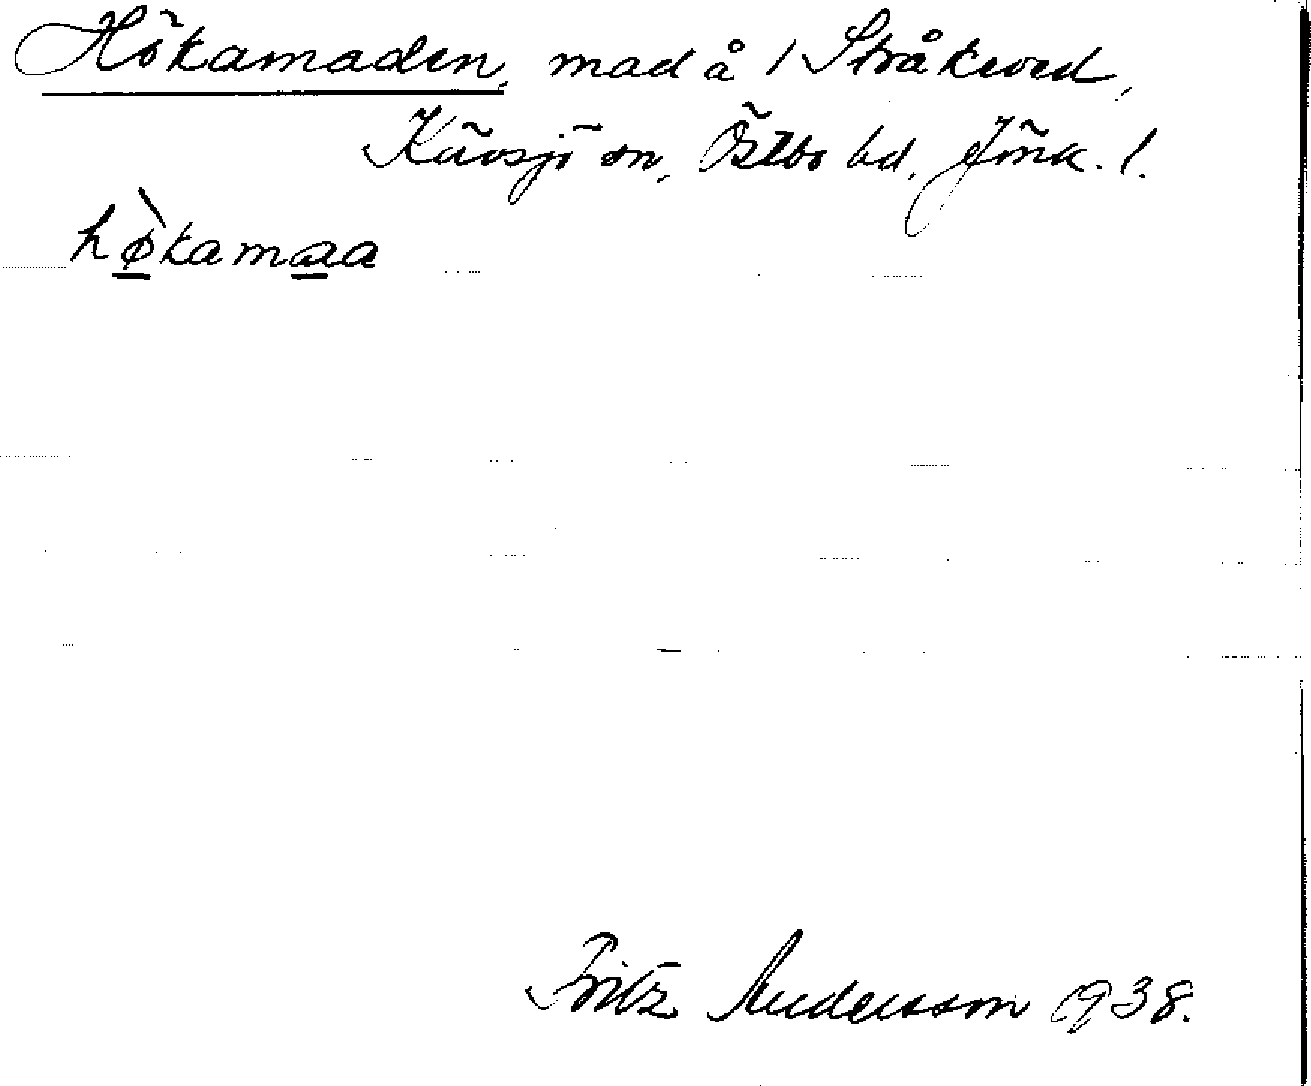 Hökamaden, mad å 1 Stråkeved,
Kävsjö sn, Östbo hd, Jönk. l.
hø̀kamaa
Fritz Andersson 1938.